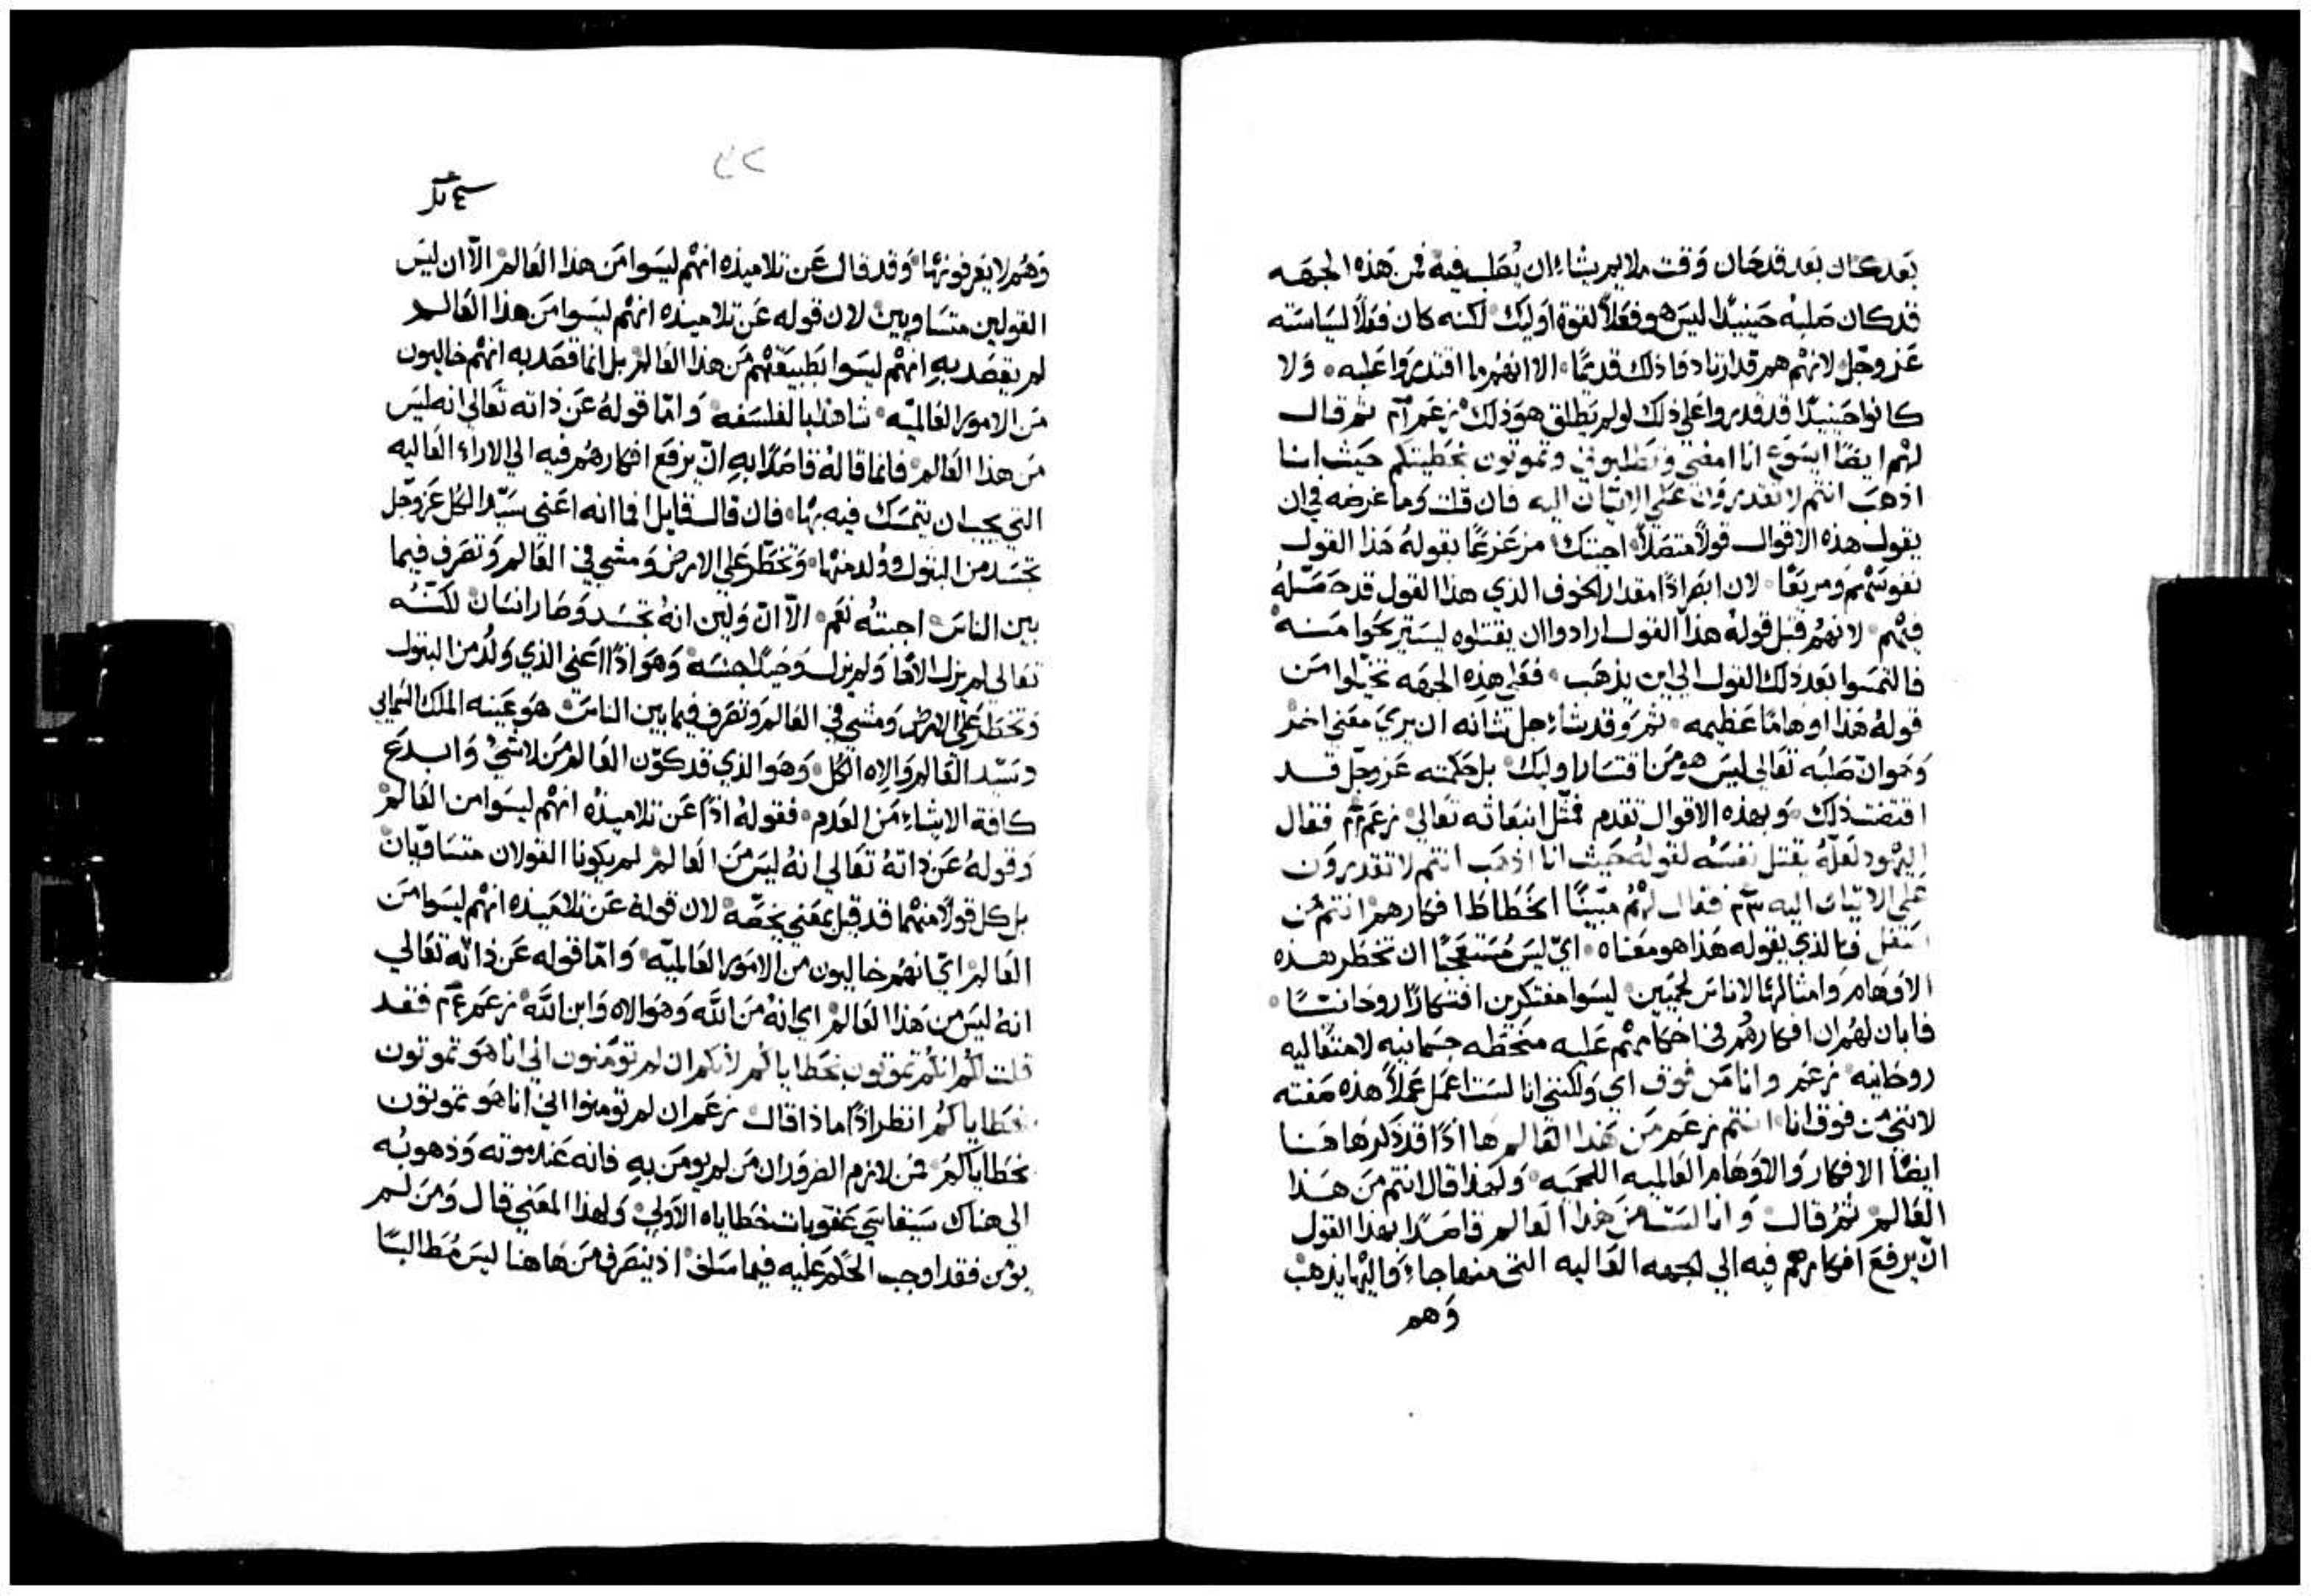 بعد كان بعد قد حان وقت ملايم يشاء ان يُصلب فيه فمن هذه الجهه
قد كان صلبه حينيدًا ليس هو فعلاً لقوة اوليك لكنه كان فعلاً لسياسته
عز وجل لانهم هم قد ارتادوا ذلك قديمًا الا انهم ما اقتدروا عليه ولا
كانوا حينيدًا قد قدروا على ذلك لو لم يطلق هو ذلك زعم ثم قال
لهم ايضًا ايسوع انا امضي وتطلبوني وتموتون بخطيتكم حيث انا
اذهب انتم لا تقدرون على الاتيان اليه فان قلت وما غرضه في ان
يقول هذه الاقوال قولاً متصلاً اجبتك مزعزعًا بقوله هذا القول
نفوسهم ومريعًا لان ابصر اذًا مقدار الخوف الذي هذا القول قد حصّله
فيهم لانهم قبل قوله هذا القول ارادوا ان يقتلوه ليستريحوا منه
فالتمسوا بعد ذلك القول الي اين يذهب فعلى هذه الجهه تخيلوا من
قوله هذا اوهامًا عظيمه ثم وقد شاء جل شانه ان يري معني اخر
وهو انّ صلبه تعالى ليس هو من اقتسار اوليك بل حكمته عز وجل قد
اقتضت ذلك وبهذه الاقوال تقدم فمثّل انبعاثه تعالي زعم فقال
اليهود لعلّه يقتل نفسه لقوله حيث انا اذهب انتم لا تقدرون
على الاتيان اليه فقال لهم مبينًا انحطاط افكارهم انتم من
اسفل فالذي يقوله هذا هو معناه ايّ ليس مُستعجبًا ان تخطر هذه
الاوهام وامثالها لاناس لحميين ليسوا مفتكرين افتكارًا روحانيًا
فابان لهم ان افكارهم في احكامهم عليه منحطه جسمانيه لا متعاليه
روحانيه زعم وانا من فوق اي ولكنني انا لست اعمل عملاً هذه صفته
لانني من فوق انا انتم زعم من هذا العالم ها اذًا قد ذكر هاهنا
ايضًا الافكار والاوهام العالميه اللحميه ولهذا قال انتم من هذا
العالم ثم قال وانا لست من هذا العالم قاصدًا بهذا القول
انّ يرفع افكارهم فيه الي الجهه العاليه التي منها جاء واليها يذهب
وهم
٤٢
وهم لا يعرفونها وقد قال عن تلاميذه انهم ليسوا من هذا العالم الا ان ليس
القولين متساويين لان قوله عن تلاميذه انهم ليسوا من هذا العالم
لم يقصد به انهم ليسوا بطبيعتهم من هذا العالم بل انما قصد به انهم خاليون
من الامور العالميّه وامّا قوله عن ذاته تعالى انه ليس
من هذا العالم فانما قاله قاصدًا به انّ يرفع افكارهم فيه الي الاراء العاليه
التي يجب ان يتمسك فيه بها فان قال قايل افما انه اعني سيّد الكل عز وجل
تجسد من البتول وولد منها وتخطّر على الارض ومشي في العالم وتصرف فيما
بين الناس اجبته نعم الاّ انّ ولين انه تجسد وصار انسان لكنّه
تعالى لم يزل الاهًا ولم يزل وهو اذًا اعني الذي ولد من البتول
وتخطر على الارض ومشي في العالم وتصرف فيما بين الناس هو عينه الملك السمايي
وسيّد العالم والاه الكل وهو الذي قد كوّن العالم من لا شي وابدع
كافة الاشياء من العدم فقوله اذًا عن تلاميذه انهم ليسوا من العالم
وقوله عن ذاته تعالى انه ليس من العالم لم يكونا القولان متساويان
بل كل قولاً منهما قد قيل بمعني يخصّه لان قوله عن تلاميذه انهم ليسوا من
العالم ايّ انهم خاليون من الامور العالميّه وامّا قوله عن ذاته تعالي
انه ليس من هذا العالم اي انه من الله وهو الاه وابن الله زعم فقد
قلت لكم انكم تموتون بخطاياكم لانكم ان لم تومنون اني انا هو تموتون
بخطاياكم انظر اذًا ماذا قال زعم ان لم تومنوا اني انا هو تموتون
بخطاياكم فمن لازم الضروران من لم يومن به فانه عند موته وذهوبه
الى هناك سيقاسي عقوبات خطاياه الاولي ولهذا المعني قال ومن لم
يومن فقد اوجب الحكم عليه فيما سلف اذ ينصرف من هاهنا ليس مُطالبًا